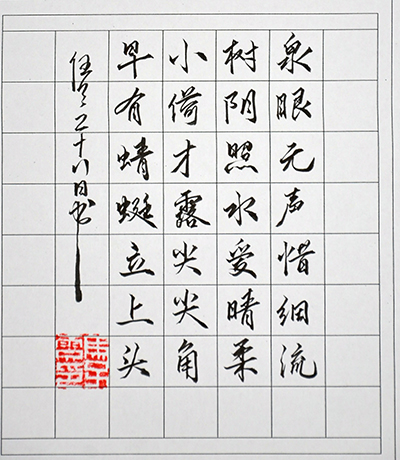 泉眼无声惜细流
树阴照水爱晴柔
小荷才露尖尖角
早有蜻蜓立上头
二十八日书